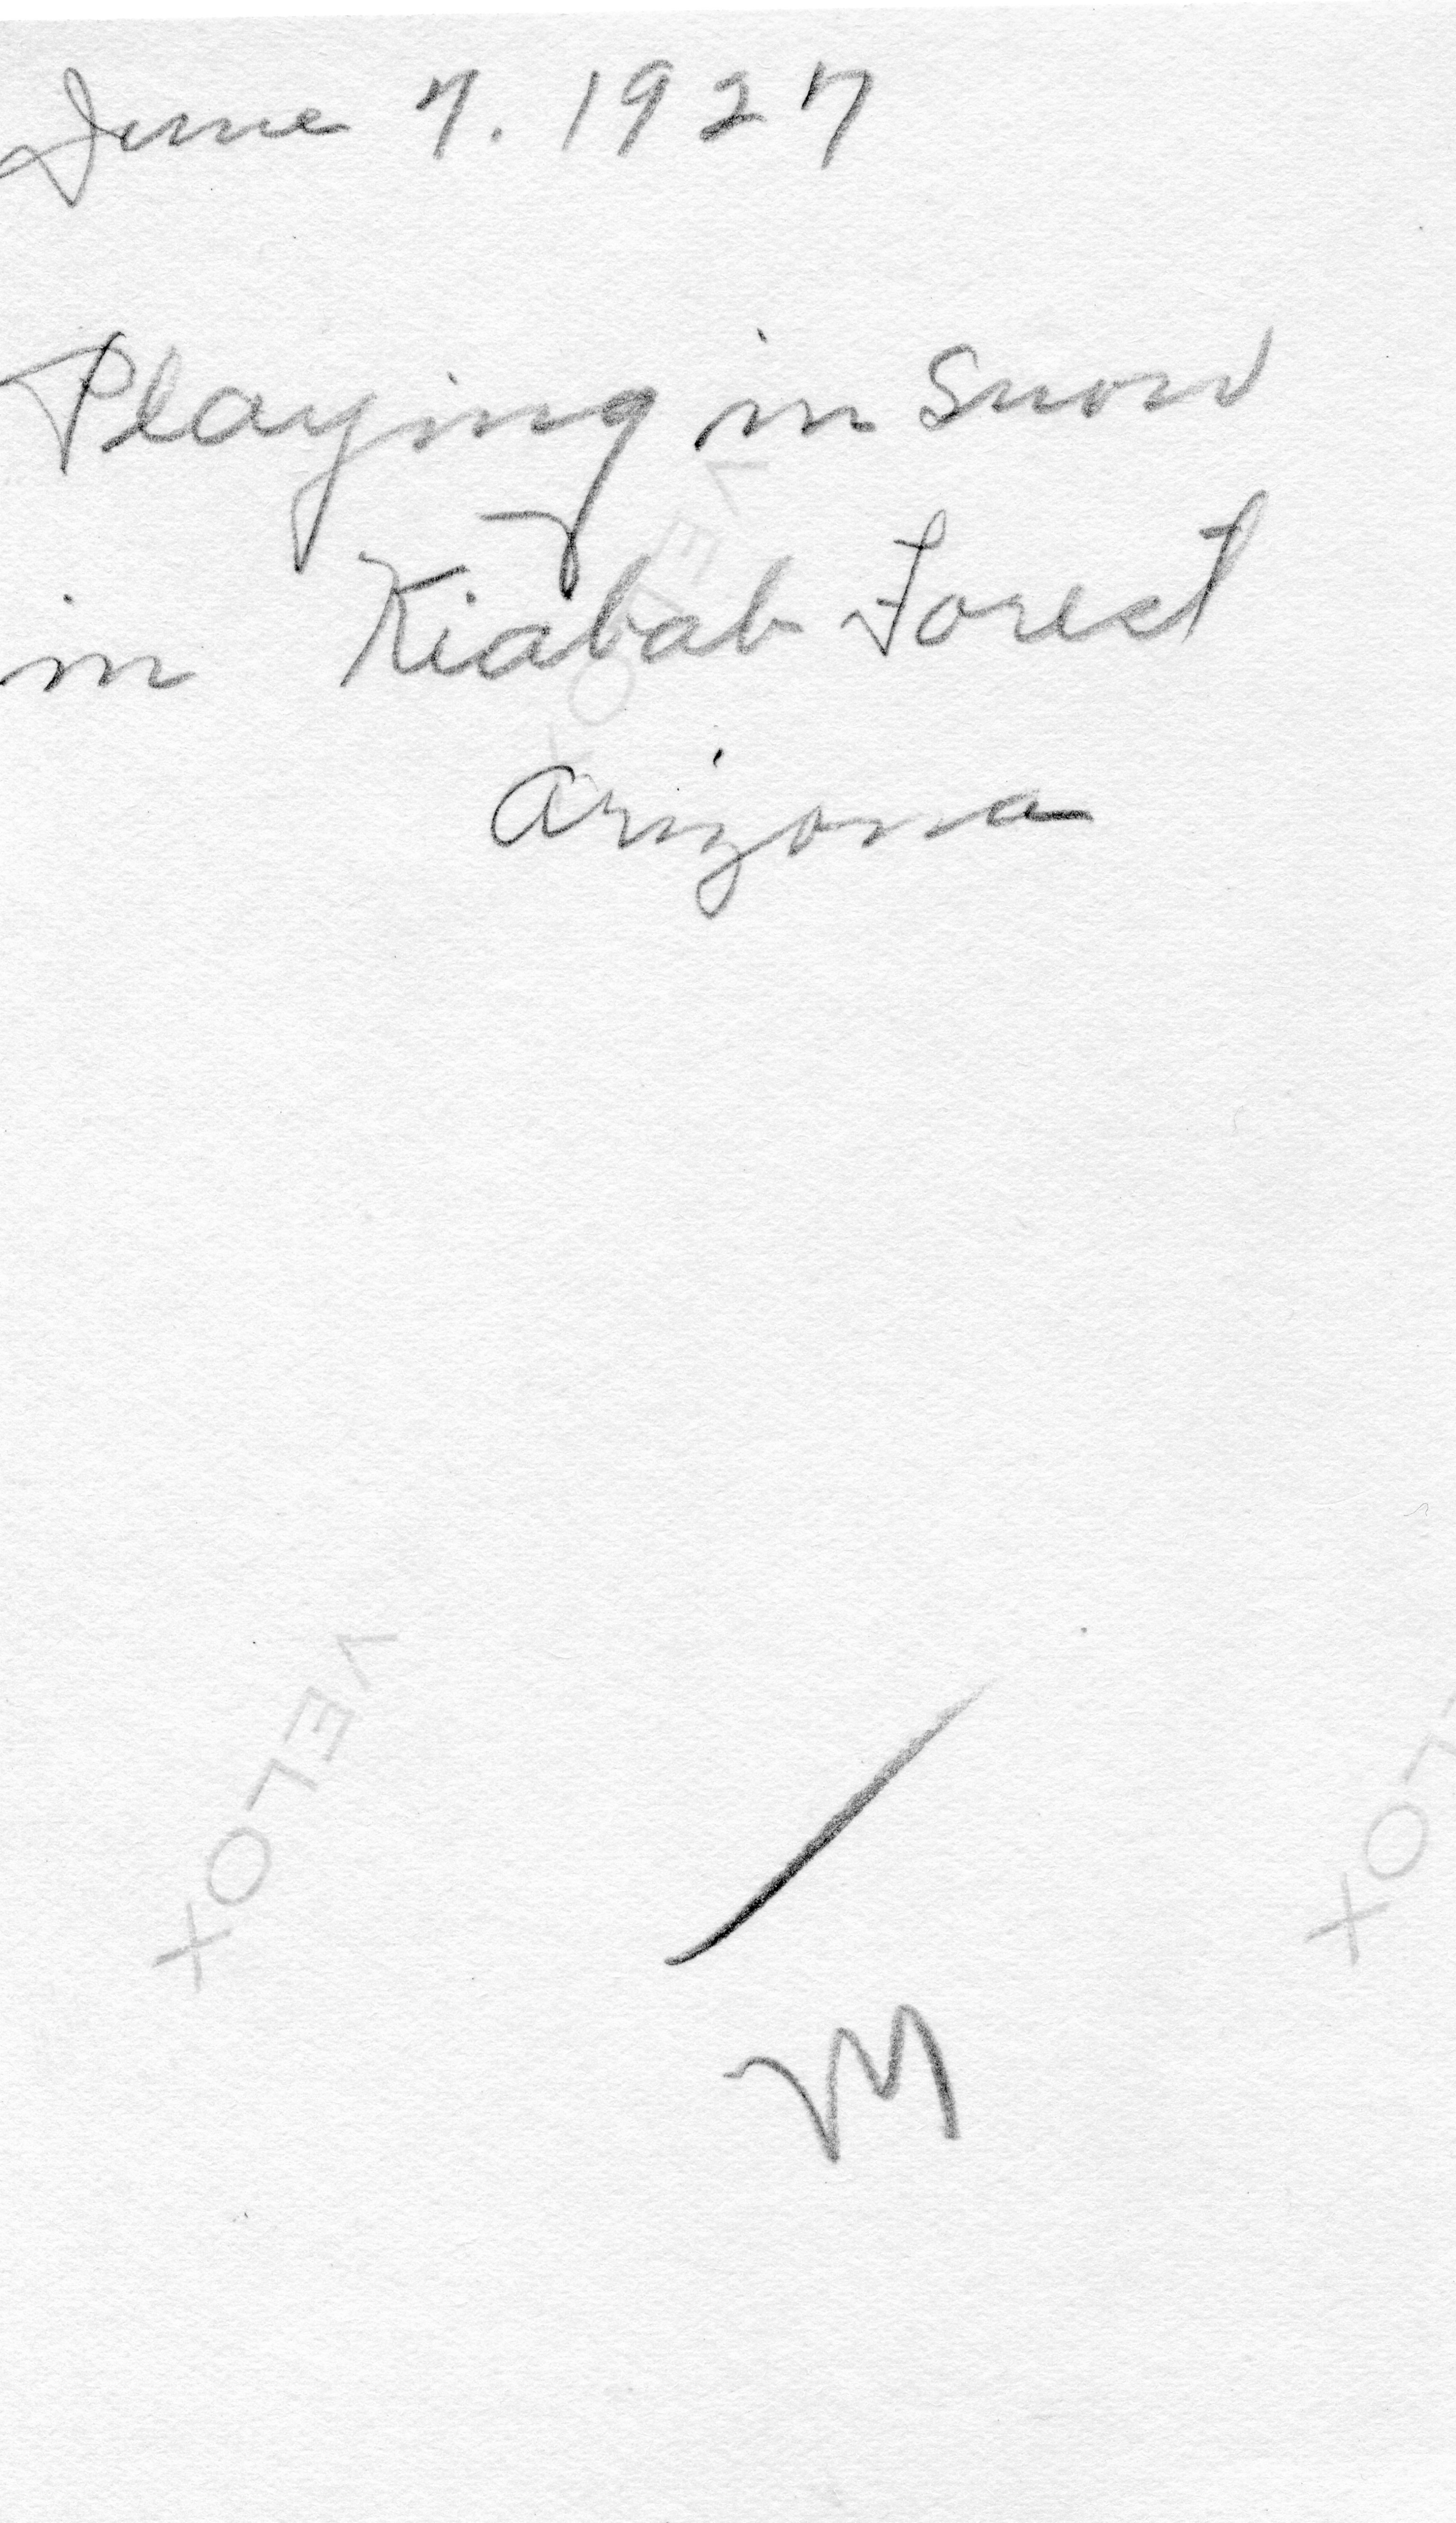 June 7. 1927
Playing in Snow
in Kiabab Forest
Arizona
VELOX
VELOX
LOX
M